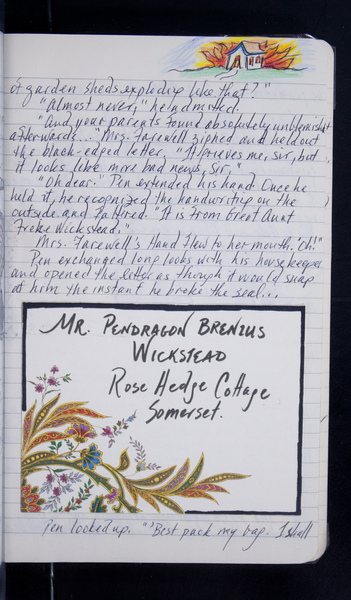 of garden sheds exploding like that?"
"Almost never," he admitted.
"And your parents found absolutely unblemished
afterwards..." Mrs. Farewell sighed and held out
the black-edged letter. "It grieves me, sir, but
it looks like more bad news, Sir."
"Oh dear." Pen extended his hand. Once he
held it, he recognized the handwriting on the
outside and faltered. "It is from Great Aunt
Freke Wickstead."
Mrs. Farewell's Hand flew to her mouth. "Oh!"
Pen exchanged long looks with his housekeeper
and opened the letter as though it would snap
at him the instant he broke the seal...
MR. PENDRAGON BRENIUS
WICKSTEAD
Rose Hedge Cottage
Somerset.
Pen looked up. "Best pack my bag. I shall